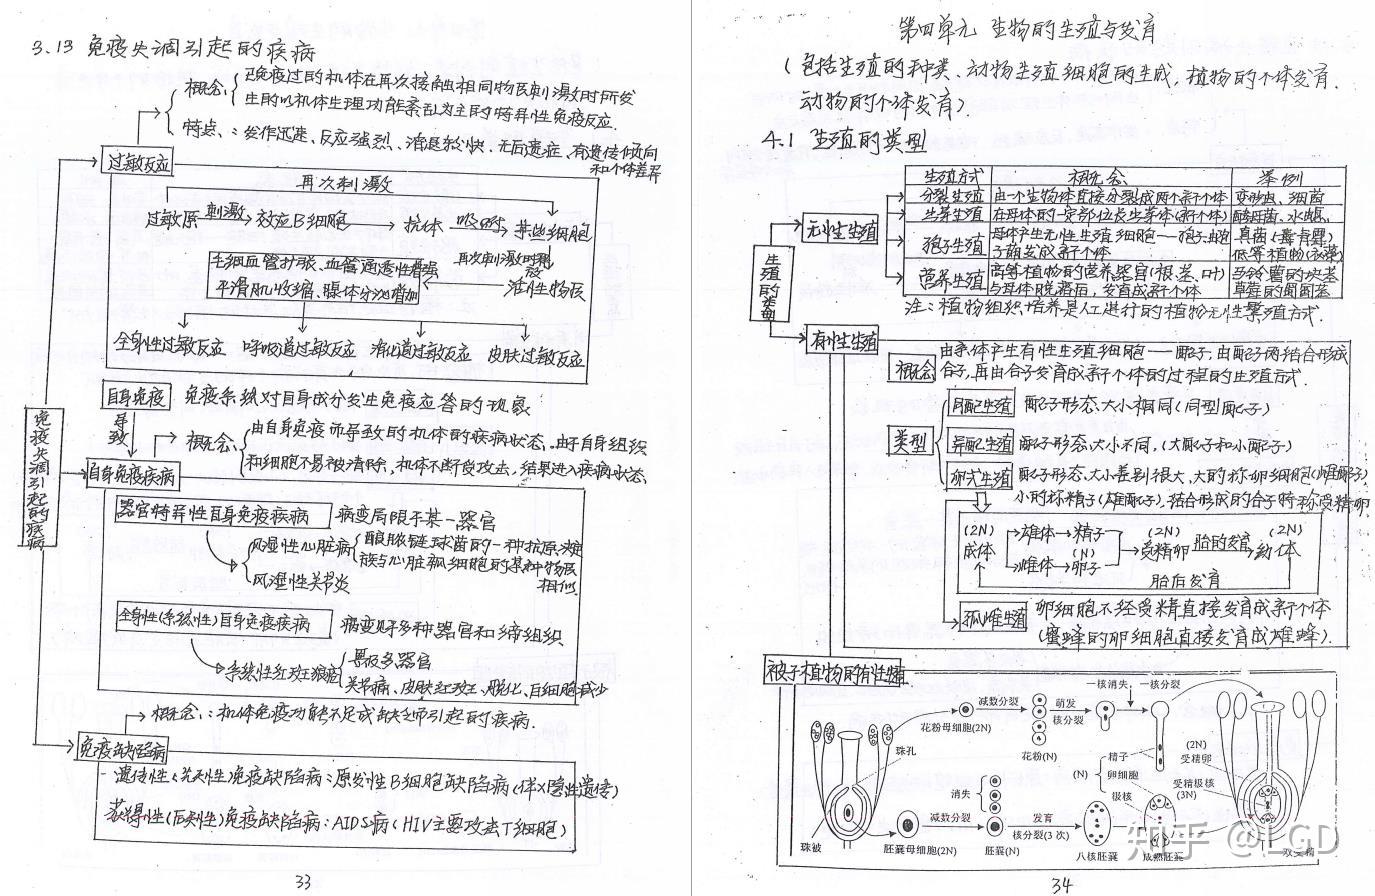 3.13 免疫失调引起的疾病
免疫失调引起的疾病
概念:
已免疫过的机体在再次接触相同物质刺激时所发
生的以机体生理功能紊乱为主的特异性免疫反应
特点:发作迅速、反应强烈、消退较快.无后遗症、有遗传倾向
和个体差异
过敏反应
再次刺激
过敏原 刺激 效应B细胞 抗体 吸附 某些细胞
再次刺激时释放
毛细血管扩张、血管通透性增强
平滑肌收缩、腺体分泌增加
活性物质
全身性过敏反应 呼吸道过敏反应 消化道过敏反应 皮肤过敏反应
自身免疫 免疫系统对自身成分发生免疫应答的现象
导致
概念:
由自身免疫而导致的机体的疾病状态.由于自身组织
和细胞不易被清除,机体不断受攻击,结果进入疾病状态、
自身免疫疾病
器官特异性自身免疫疾病 病变局限于某一器官
风湿性心脏病
酿脓链球菌的一种抗原决定
簇与心脏瓣细胞的某种物质
相似
风湿性关节炎
全身性(系统性)自身免疫疾病 病变好多种器官和缔组织
系统性红斑狼疮
累及多器官
关节痛、皮肤红斑、脱发、白细胞减少
概念:机体免疫功能不足或缺乏而引起的疾病.
免疫缺陷病
遗传性(先天性)免疫缺陷病:原发性B细胞缺陷病(伴X隐性遗传)
获得性(后天性)免疫缺陷病:AIDS病(HIV主要攻击T细胞)
33
第四单元 生物的生殖与发育
(包括生殖的种类、动物生殖细胞的生成,植物的个体发育.
动物的个体发育)
4.1 生殖的类型
生殖的类型
生殖方式 概念 举例
无性生殖
分裂生殖 由一个生物体直接分裂成两个新个体 变形虫、细菌
出芽生殖 在母体的一定部位长出芽体(新个体) 酵母菌、水螅
孢子生殖
母体产生无性生殖细胞——孢子,由孢
子萌发成新个体
真菌(青霉)
低等植物
营养生殖
高等植物的营养器官(根.茎.叶)
与母体脱离后,发育成新个体
马铃薯的块茎
草莓的匍匐茎
注:植物组织培养是人工进行的植物无性繁殖方式.
有性生殖
概念
由亲体产生有性生殖细胞——配子,由配子两两结合形成
合子,再由合子发育成新个体的过程的生殖方式.
类型
同配生殖 配子形态、大小相同(同型配子)
异配生殖 配子形态、大小不同,(大配子和小配子)
卵式生殖 配子形态、大小差别很大,大的称卵细胞(雌配子)
小的称精子(雄配子).结合形成的合子特称受精卵
(2N) 成体
雄体 精子
(N)
雌体 卵子
(2N) 受精卵
胎的发育
(2N) 幼体
胎后发育
孤雌生殖
卵细胞不经受精直接发育成新个体
(蜜蜂的卵细胞直接发育成雄蜂).
被子植物的有性生殖
花粉母细胞(2N) 减数分裂 花粉(N) 萌发 核分裂 一核消失,一核分裂
珠孔
珠被
精子
(N) 卵细胞
极核
(2N) 受精卵
受精极核 (3N)
消失
胚囊母细胞(2N) 减数分裂 胚囊(N) 发育 核分裂(3次) 八核胚囊 成熟胚囊 双受精
知乎 @LGD
34